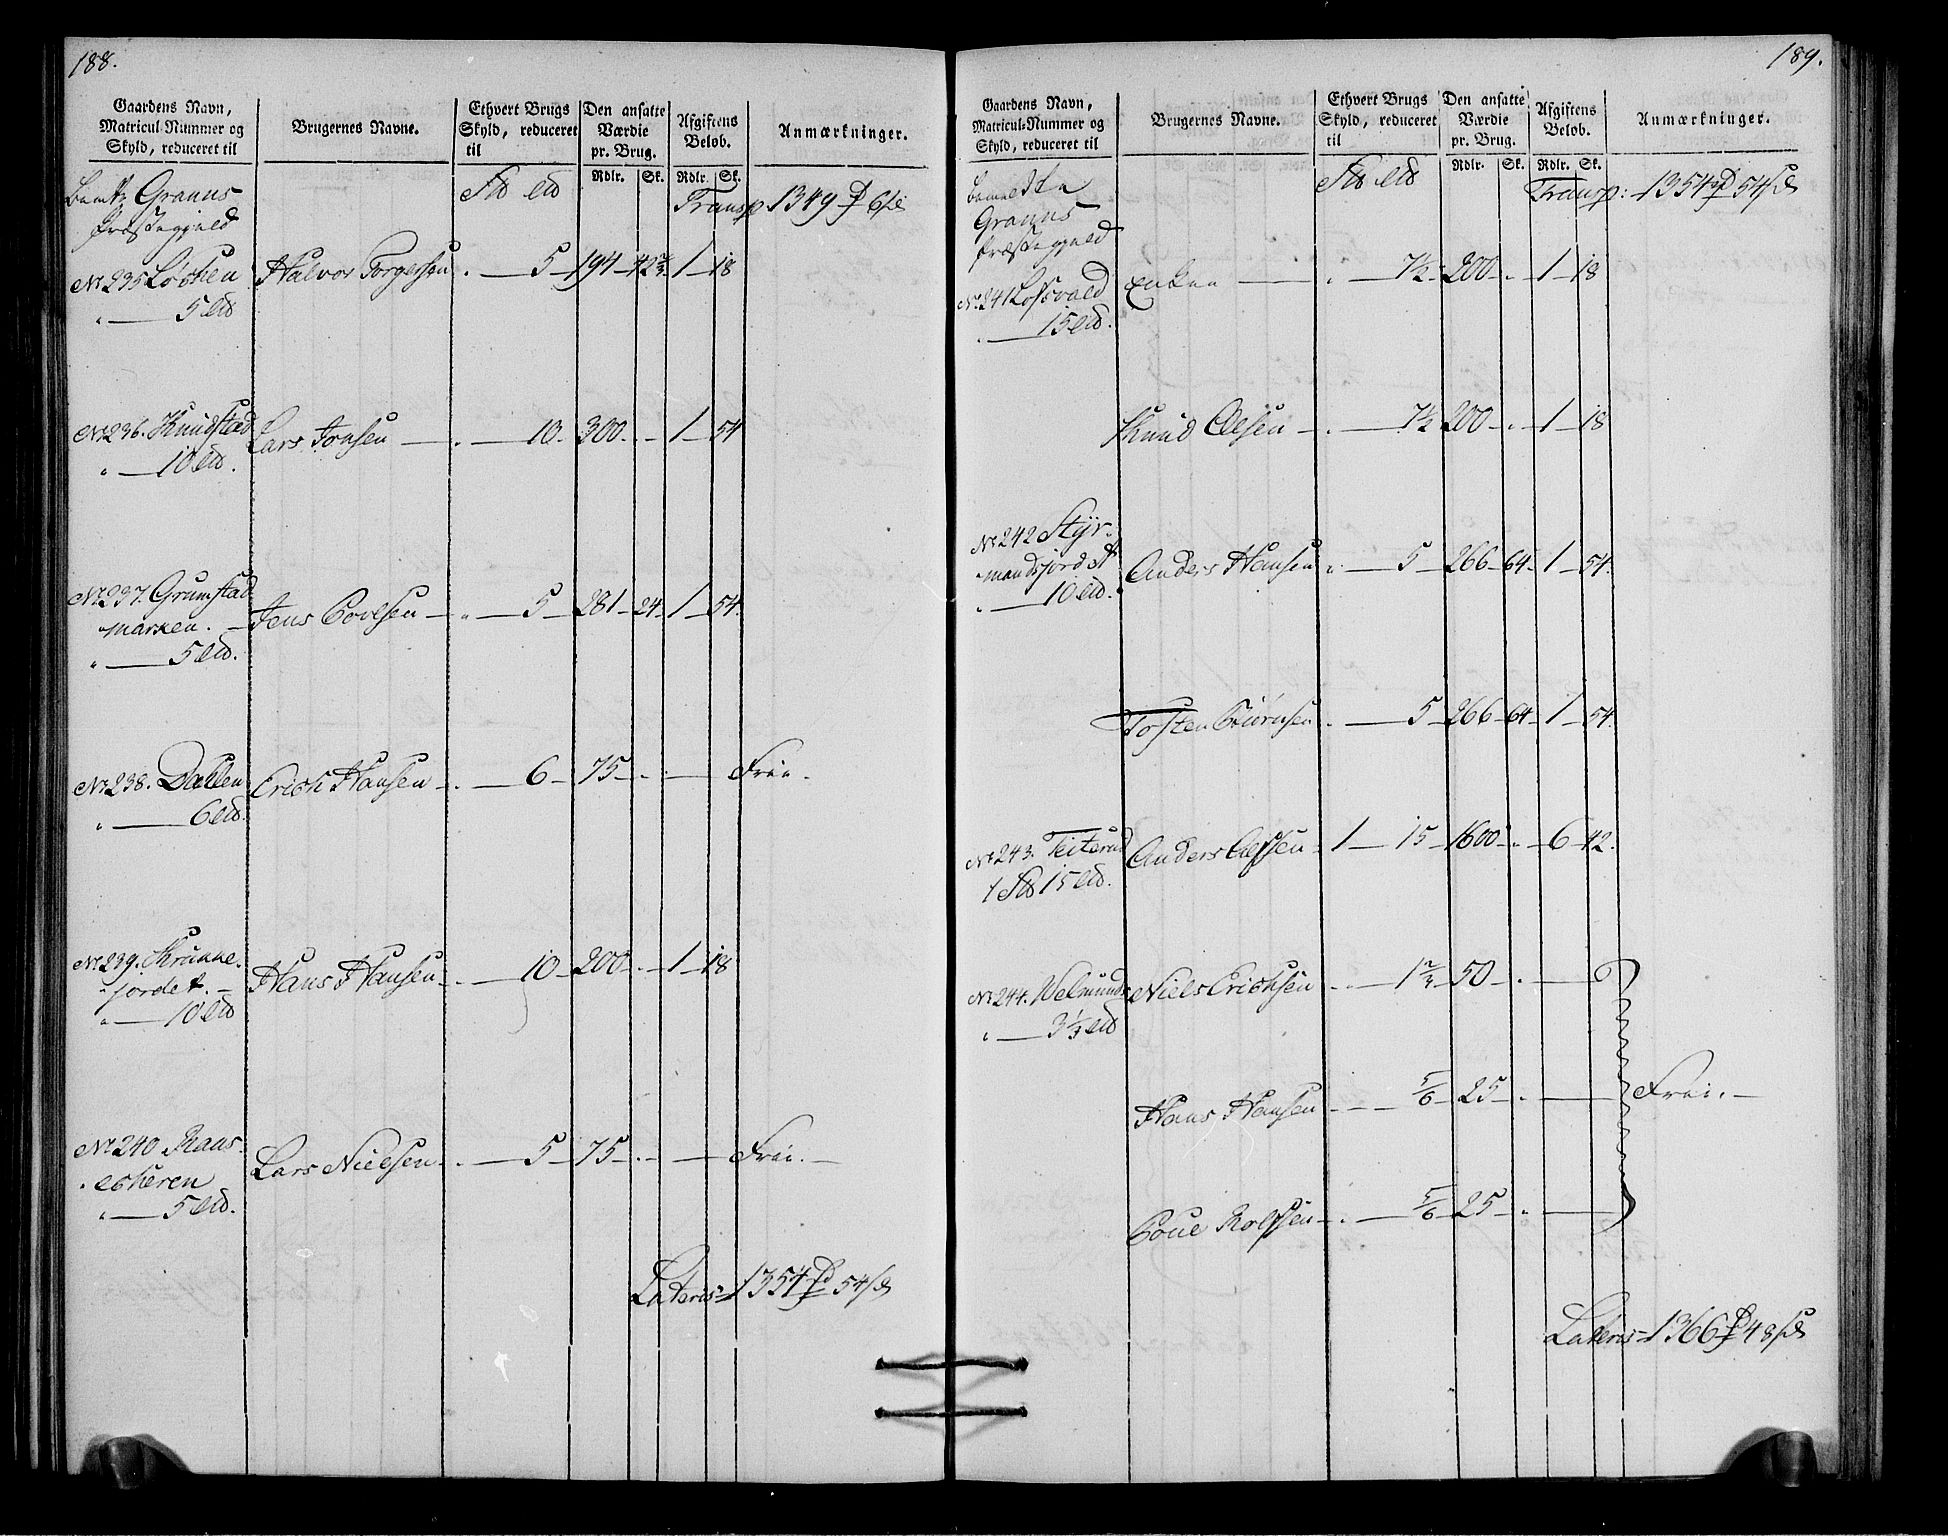 188.
Gaardens Navn,
Matricul-Nummer og
Skyld, reduceret til
Brugernes Navne.
Ethvert Brugs
Skyld, reduceret
til
Den ansatte
Værdie
pr. Brug.
Rdlr. Sk.
Afgiftens
Beløb.
Rdlr. Sk.
Anmærkninger.
Granns
Præstegjeld
Transp 1349 6
No 235 Halvor Torgersen . 5 194 42 2/3 1 18
No 236. Knudstad Lars Jonsen . 10 300 . 1 54
" 10
No 237. Grumstad
marken. Jens Povlsen " 5 281 24 1 54.
" 5
No 238. Dahlen Erich Hansen . 6 75 . Frie.
" 6
No 239. Skrukke-
jordet. Hans Hansen . 10 200 . 1 18
" 10
No 240 Raas-
ekeren Lars Nielsen . 5 75 . Frie.
" 5
Lateris 1354 54
189.
Gaardens Navn,
Matricul-Nummer og
Skyld, reduceret til
Brugernes Navne.
Ethvert Brugs
Skyld, reduceret
til
Den ansatte
Værdie
pr. Brug.
Rdlr. Sk.
Afgiftens
Beløb.
Rdlr. Sk.
Anmærkninger.
Granns
Præstegjeld
Transp: 1354 54
No 241 Enken " 7½ 200 . 1 18
15
Knud Olsen . 7½ 200 . 1 18
No 242 Styr-
mandsjordet Anders Hansen " 5 266 64 1 54.
" 10
Torsten Biörnsen . 5 266 64 1 54.
No 243. Teiterud Anders 1 15 1600 . 6 42.
1 15
No 244. Velmunds Niels Erichsen . 1 2/3 50 .
" 3 1/3
Hans Hansen 5/6 25 . Frei.
Rolfsen . 5/6 25 .
Lateris 1366 48